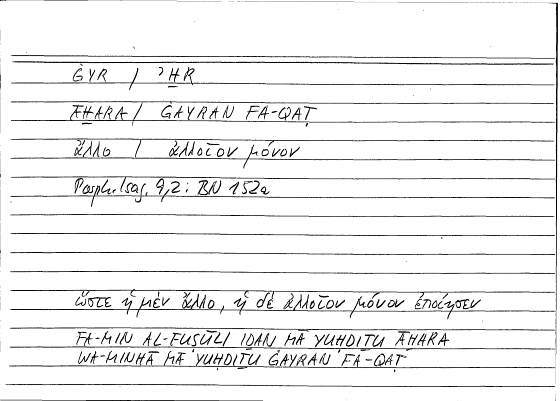 ĠYR / ʾH̱R
ĀH̱ARA / ĠAYRAN FA-QAṬ
ἄλλο / ἀλλοῖον μόνον
Porph. Isag. 9,2 : BN 152a
ὥστε ἡ μὲν ἄλλο, ἡ δὲ ἀλλοῖον μόνον ἐποίησεν
FA-MIN AL-FUṢŪLI IḎAN MĀ YUḤDIṮU ĀH̱ARA
WA-MINHĀ MĀ YUḤDIṮU ĠAYRAN FA-QAṬ